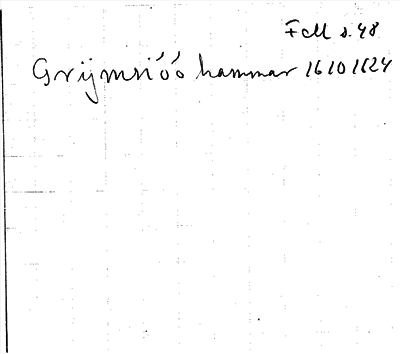 Fell s. 48
Grijmsióó hammar 1610 1624